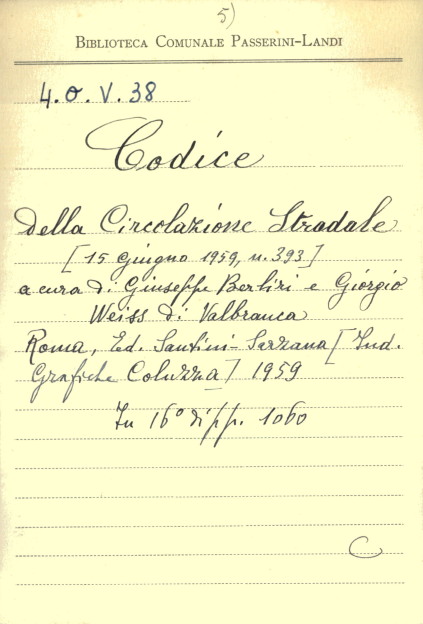 5)
BIBLIOTECA COMUNALE PASSERINI-LANDI
4.O.V.38
Codice
della Circolazione Stradale
[15 giugno 1959, n. 393]
a cura di Giuseppe Berliri e Giorgio
Weiss di Valbranca
Roma, Ed. Santini-Sarzana [Ind.
Grafiche Coluzza] 1959
In 16° di pp. 1060
C